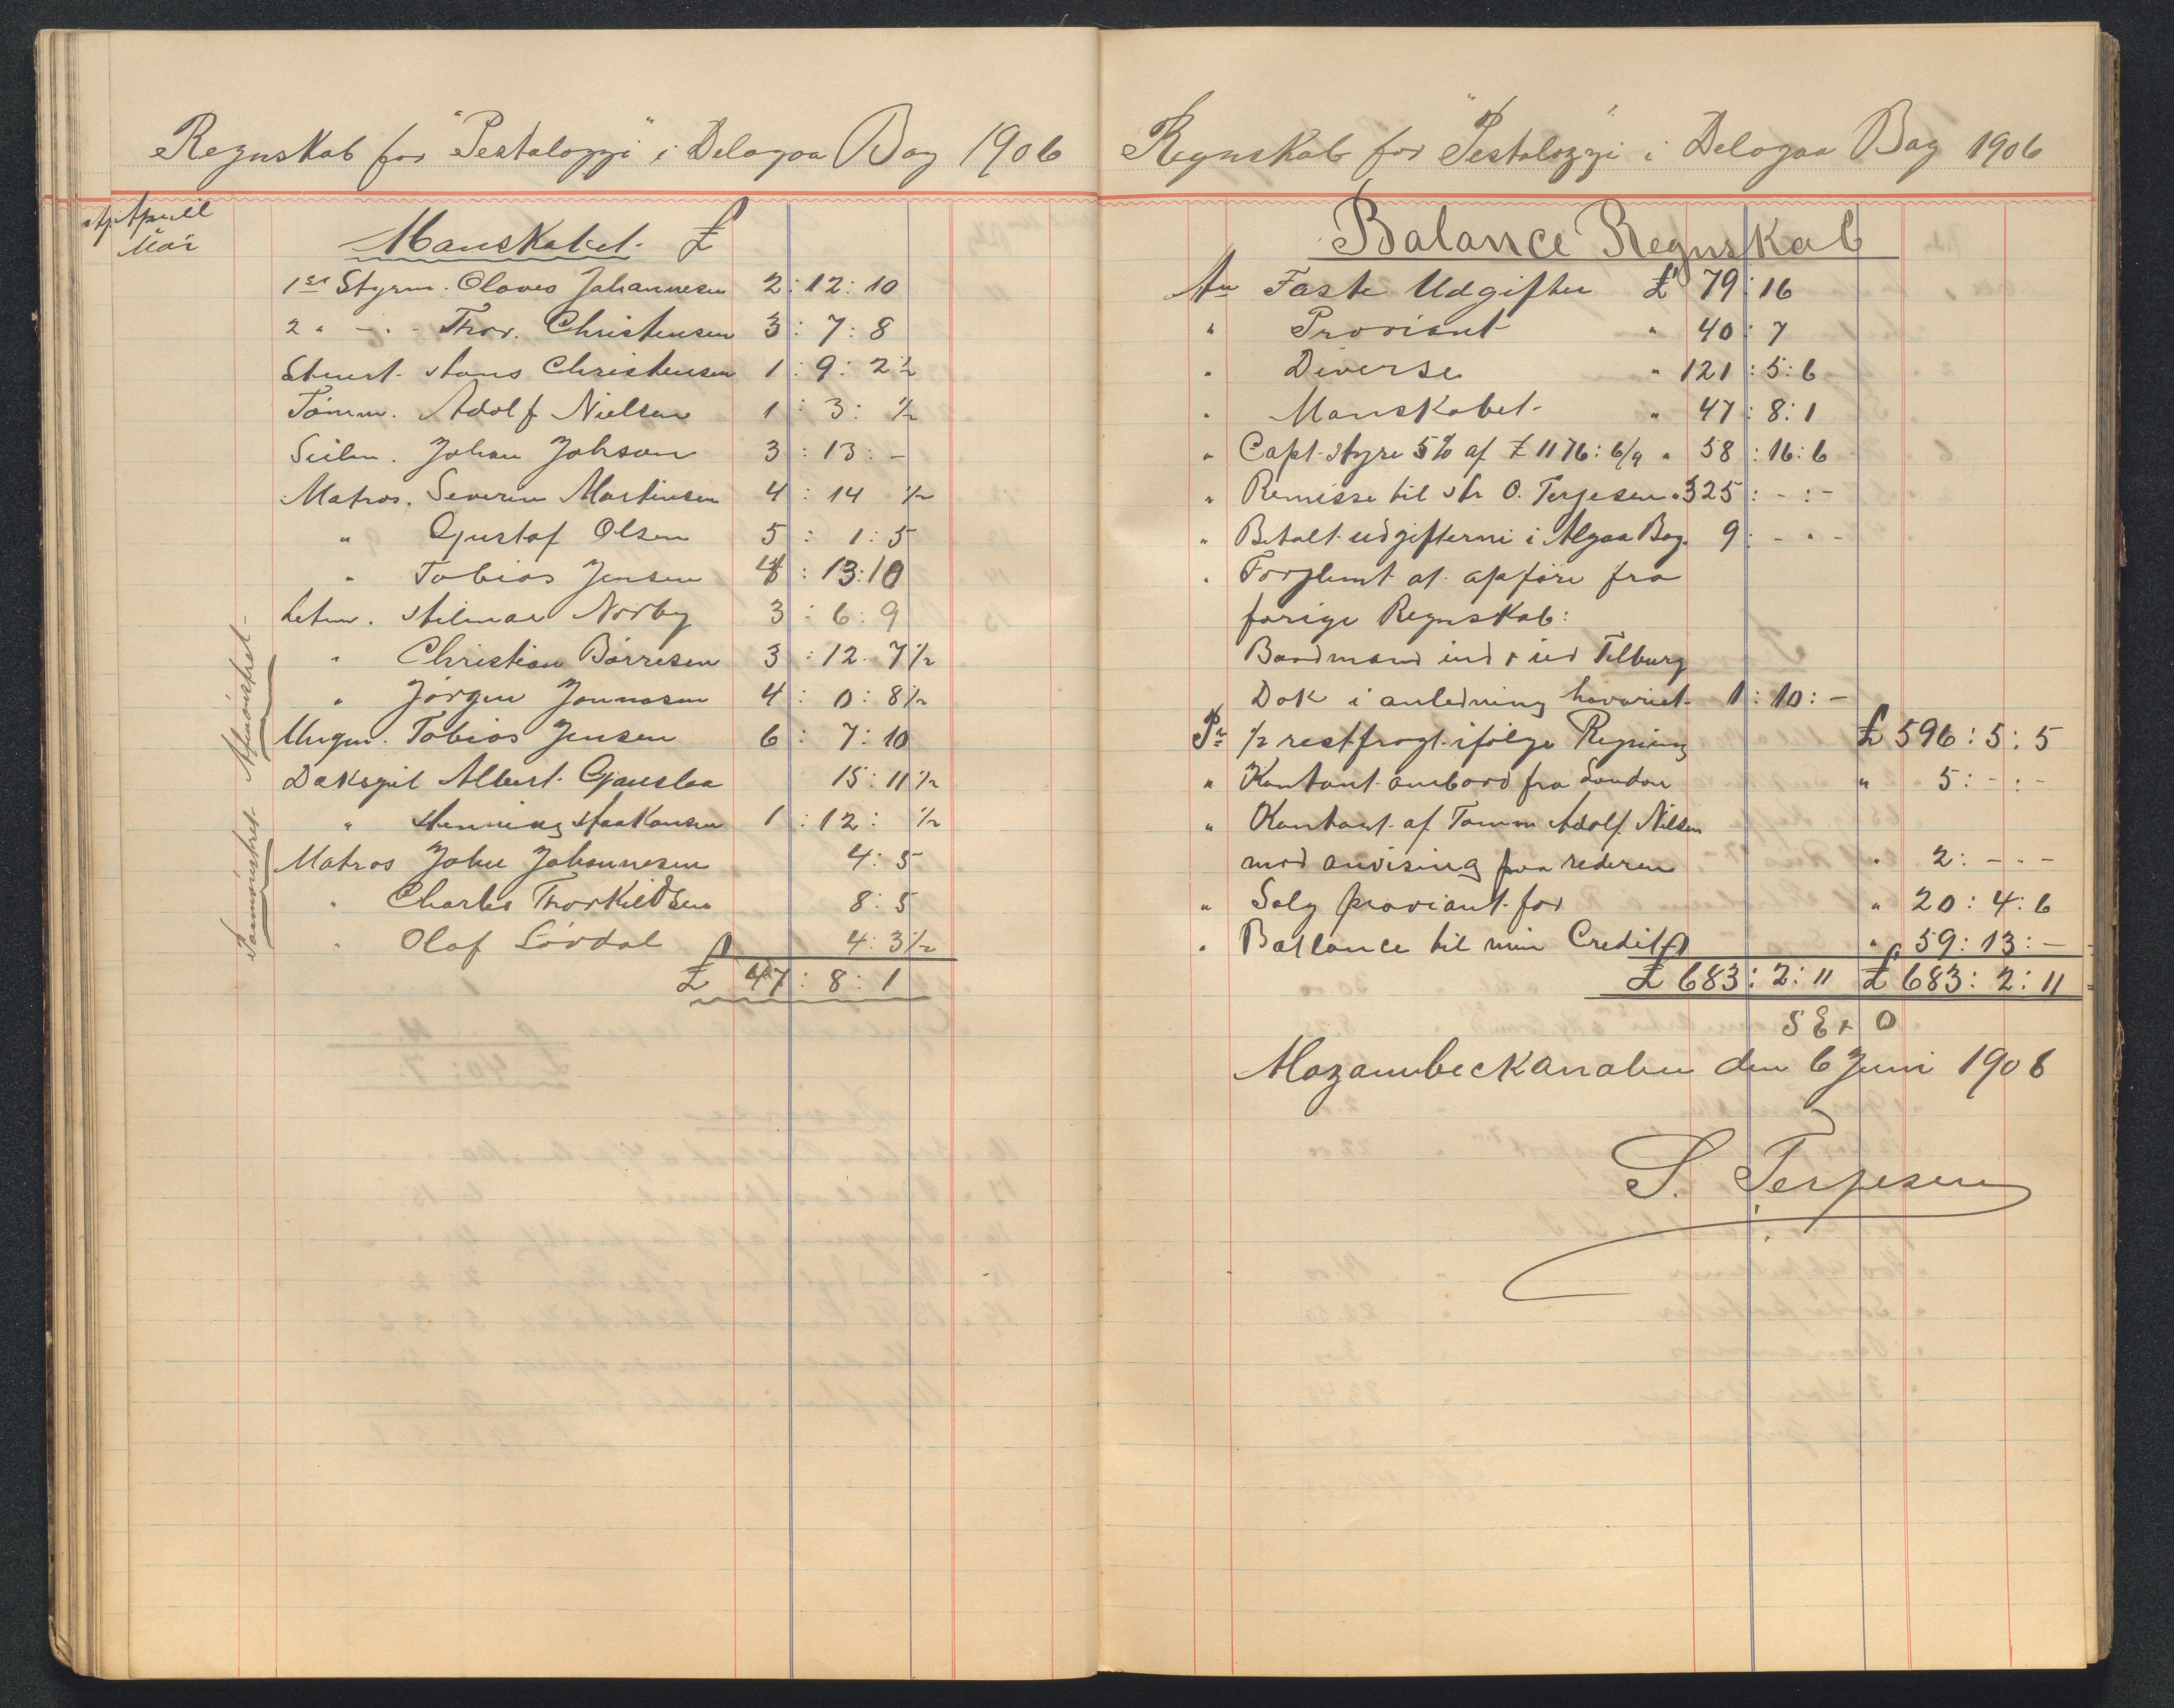 Regnskab for "Pestalozzi" i Delagoa Bay 1906
April
Mai
Manskabet. £
1st Styrm. Olaves Johannesen 2:12:10
2 " - " - Thor. Christensen 3:7:8
Stuert. Hans Christensen 1:9:2½
Tömm. Adolf Nielsen 1:3:½
Seilm. Johan Johson 3:13:-
Matros. Severin Martinsen 4:14 ½
" Gustaf Olsen 5:1:5
" Tobias Jensen 4:13:10
Letm. Hilmar Norby 3:6:9
" Christian Börresen 3:12:7½
" Jörgen Jonnasen 4:0:8½
Ungm. Tobias Jensen 6:7:10
Daksgut Albert Gjauslaa 15:11½
" Henning Haakonsen 1:12:½
Matros John Johannesen 4:5
" Charles Thorkildsen 8:5
" Olaf Lövdal 4:3½
£ 47:8:1
Afmönstret
Paamönstret
Regnskab for "Pestalozzi" i Delagoa Bay 1906
Balance Regnskab
An Faste Udgifter £ 79:16
" Proviant " 40:7
" Diverse " 121:5:6
" Manskabet " 47:8:1
" Capt. Hyre 5% af £ 1176:6/9 " 58:16:6
" Remisse til Hr O. Terjesen " 325:-:-
" Betalt udgifterni i Algoa Bay 9:-"-
" Forglemt at apföre fra
forige Regnskab:
Baadmand ind & ud Tilburg
Dok i anledning havariet 1:10:-
Pr ½ restfragt ifölge Regning £ 596:5:5
" Kontant ombord fra London " 5:-:-
" Kontant af Tömm Adolf Nilsen
mod anvising paa rederen " 2:-"-
" Salg proviant for " 20:4:6
" Ballance til min Credit " 59:13:-
£ 683:2:11 £ 683:2:11
S E & O
Mozambeckanalen den 6 Juni 1906
S. Terjesen